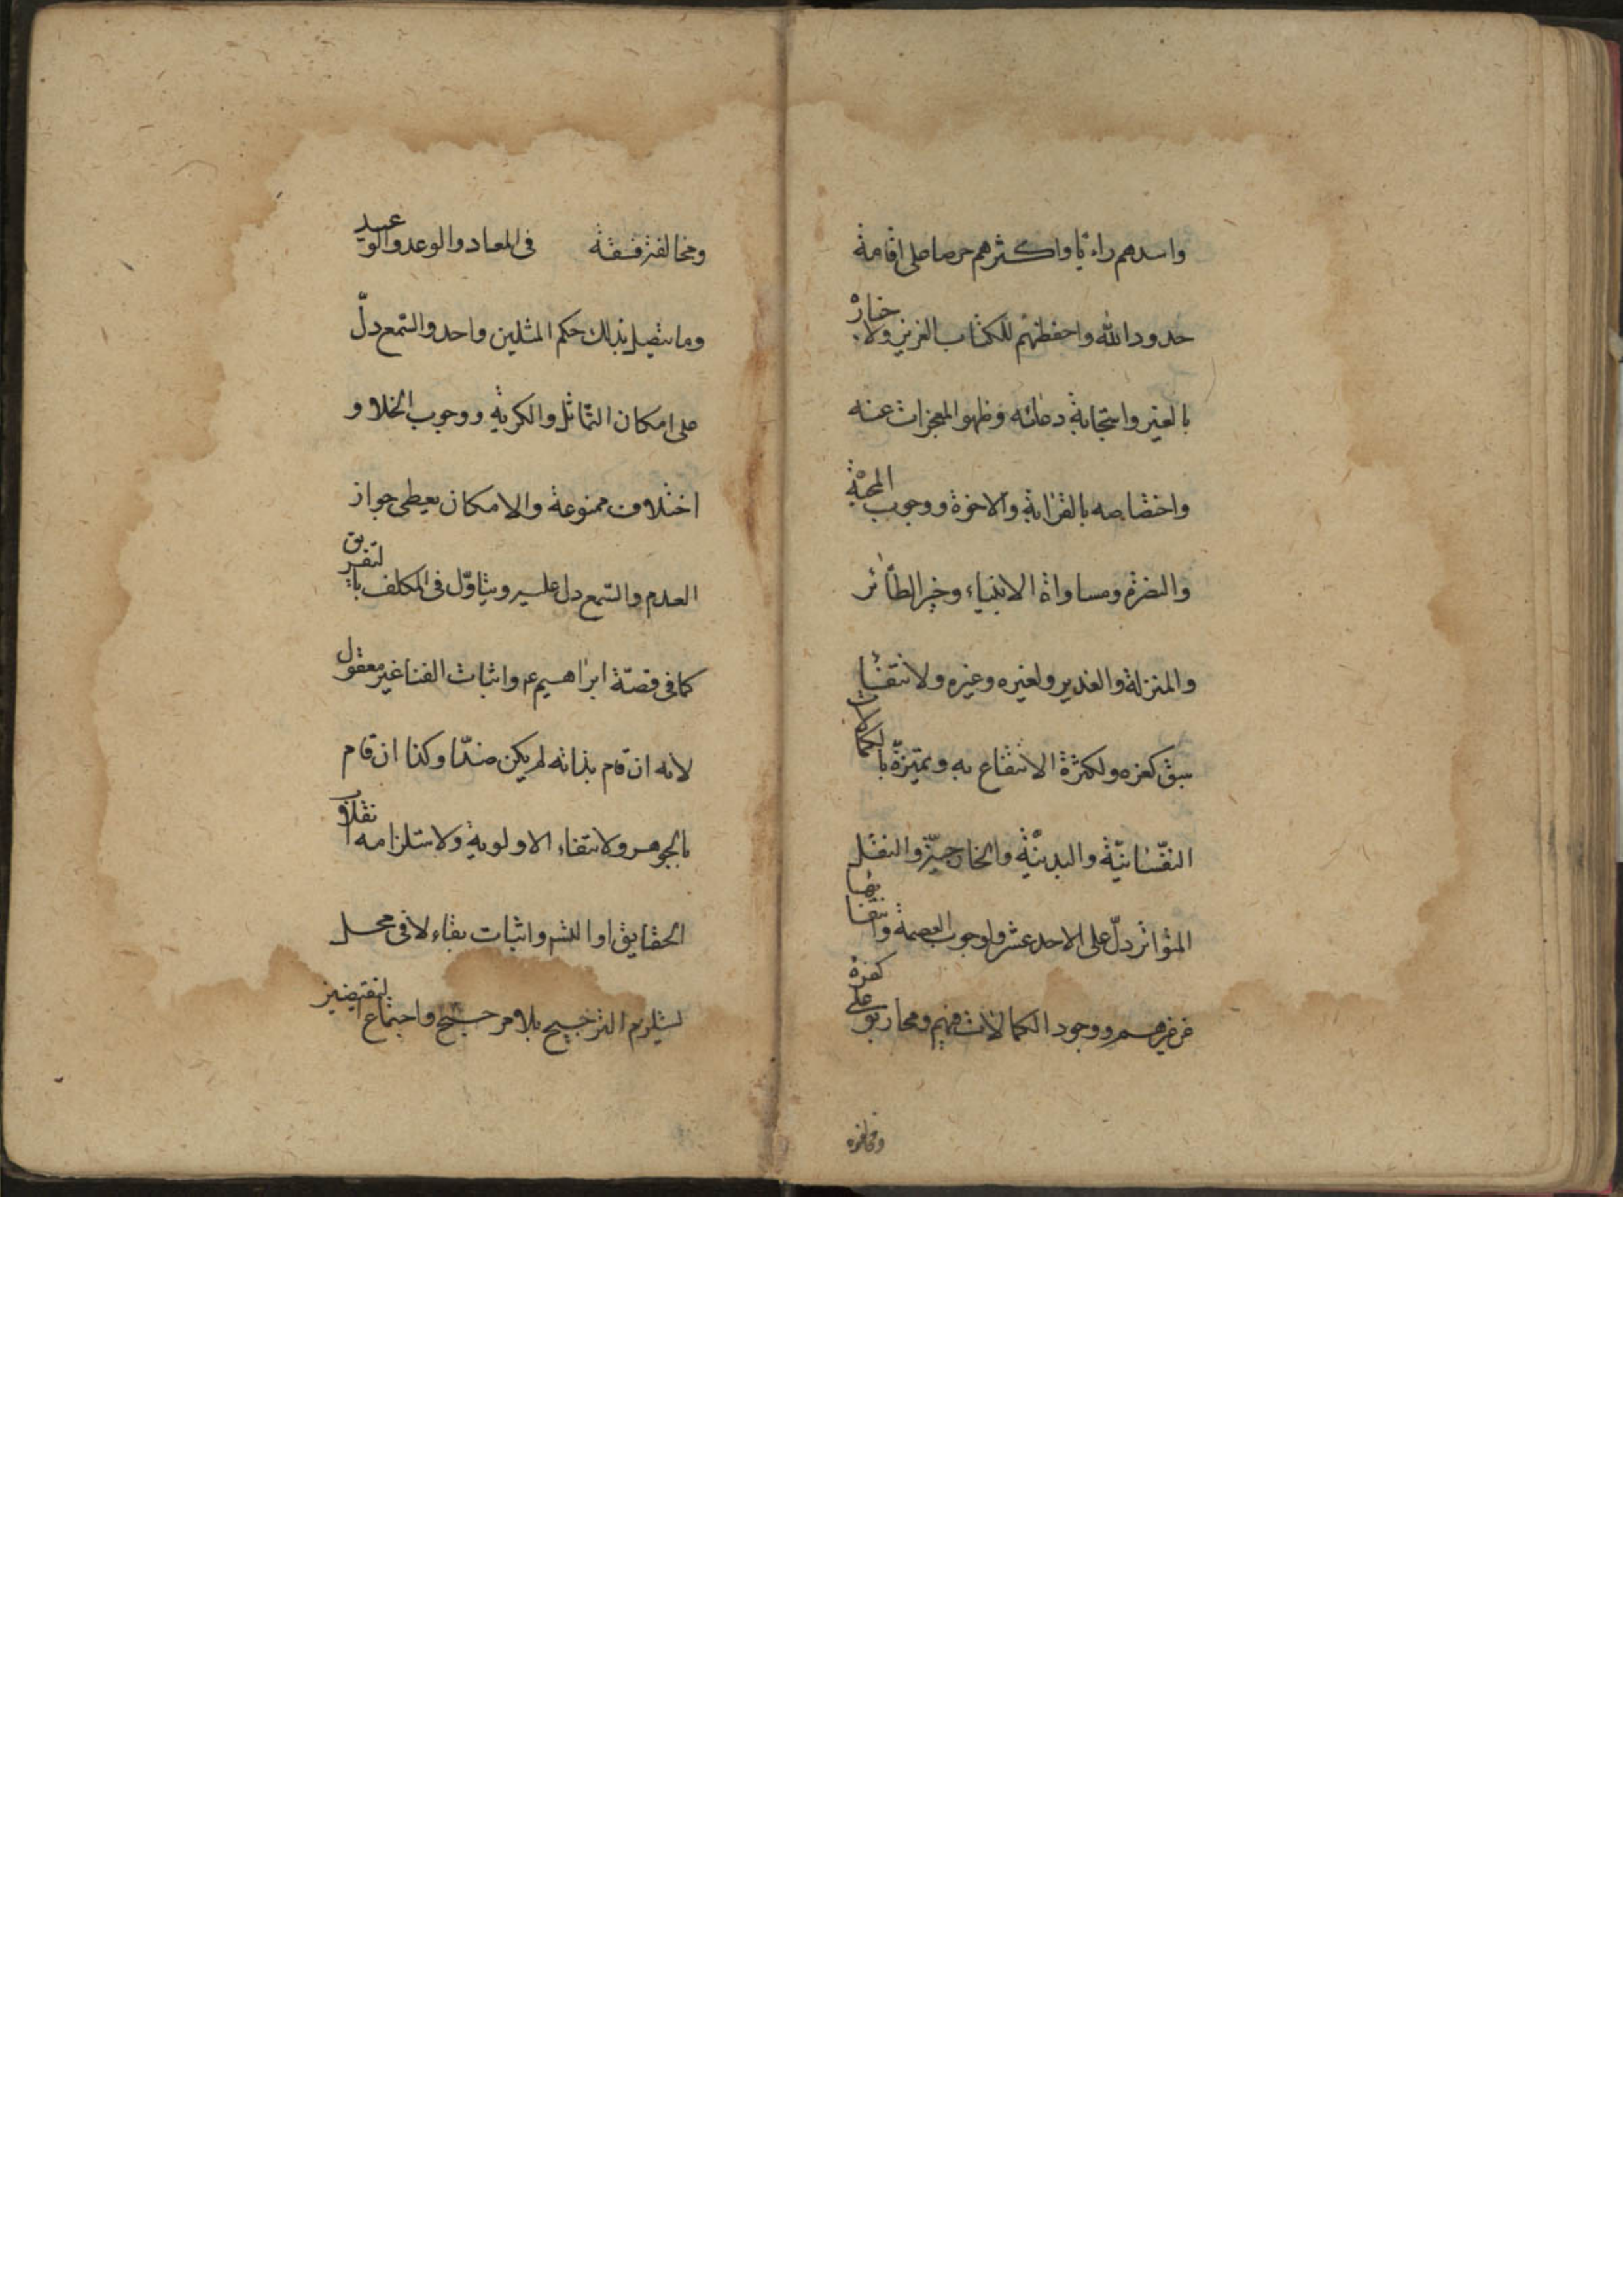 واسدهم راءيا واكثرهم حرصا على اقامة
حدود الله واحفظهم للكتاب العزيز ولاخباره
بالغير واستجابة دعائه وظهو المعجزات عنه
واختصاصه بالقرابة والاخوة ووجوب المحبة
والنصرة ومساواة الانبياء وخبر الطائر
والمنزلة والغدير ولغيره وغيره ولانتفاء
سبق كفره ولكثرة الانتفاع به وتميزة بالكمالات
النفسانية والبدنية والخارجية والنقل
المتواتر دل على الاحد عشر ولوجوب العصمة وانتفائها
عن غيرهم ووجود الكمالات فيهم ومحاربوا على كفرة
ومخالفوه
ومخالفة فسقة في المعاد والوعد والوعيد
وما يتصل بذلك حكم المثلين واحد والسمع دل
على امكان التماثل والكرية ووجوب الخلا و
اختلاف ممنوعة والامكان يعطى جواز
العدم والسمع دل عليه ويتاول في المكلف بالتفريق
كما في قصة ابراهيم ع واثبات الفنا غير معقول
لانه ان قام بذاته لم يكن ضدا وكذا ان قام
بالجوهر ولانتفاء الاولوية ولاستلزامه انقلاب
الحقايق او التس واثبات بقاء لا في محل
يستلزم الترجيح بلا مرجح واجتماع النقيضين